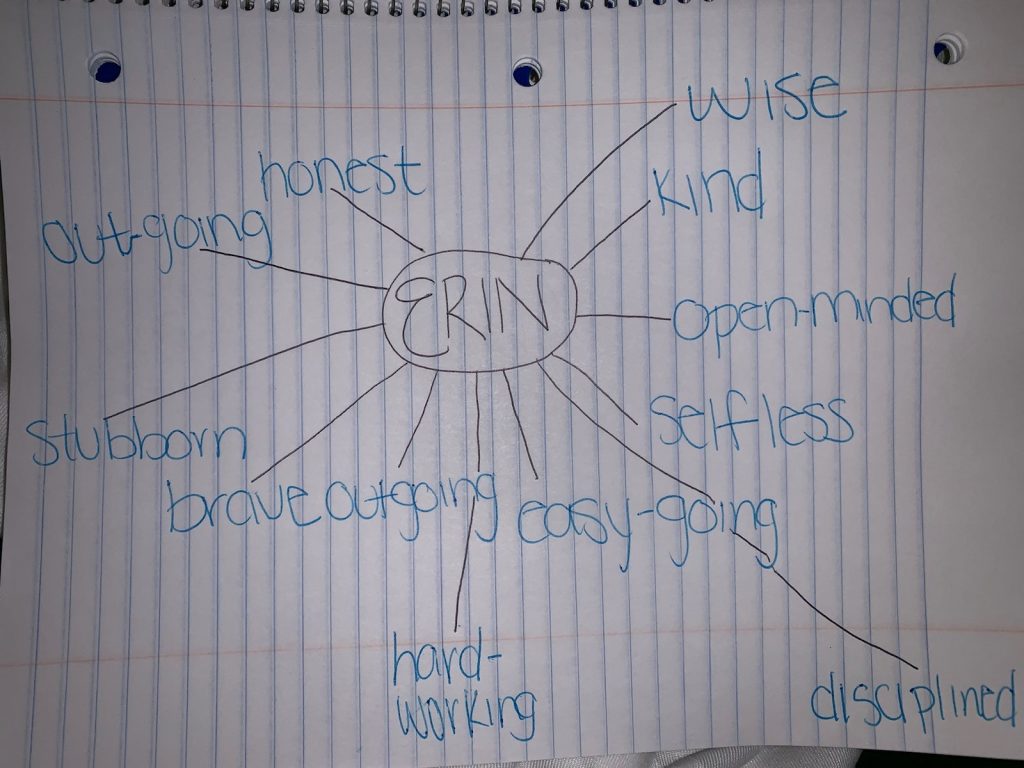 wise
honest
kind
out-going
ERIN
open-minded
selfless
stubborn
brave outgoing easy-going
hard-
working
disciplined